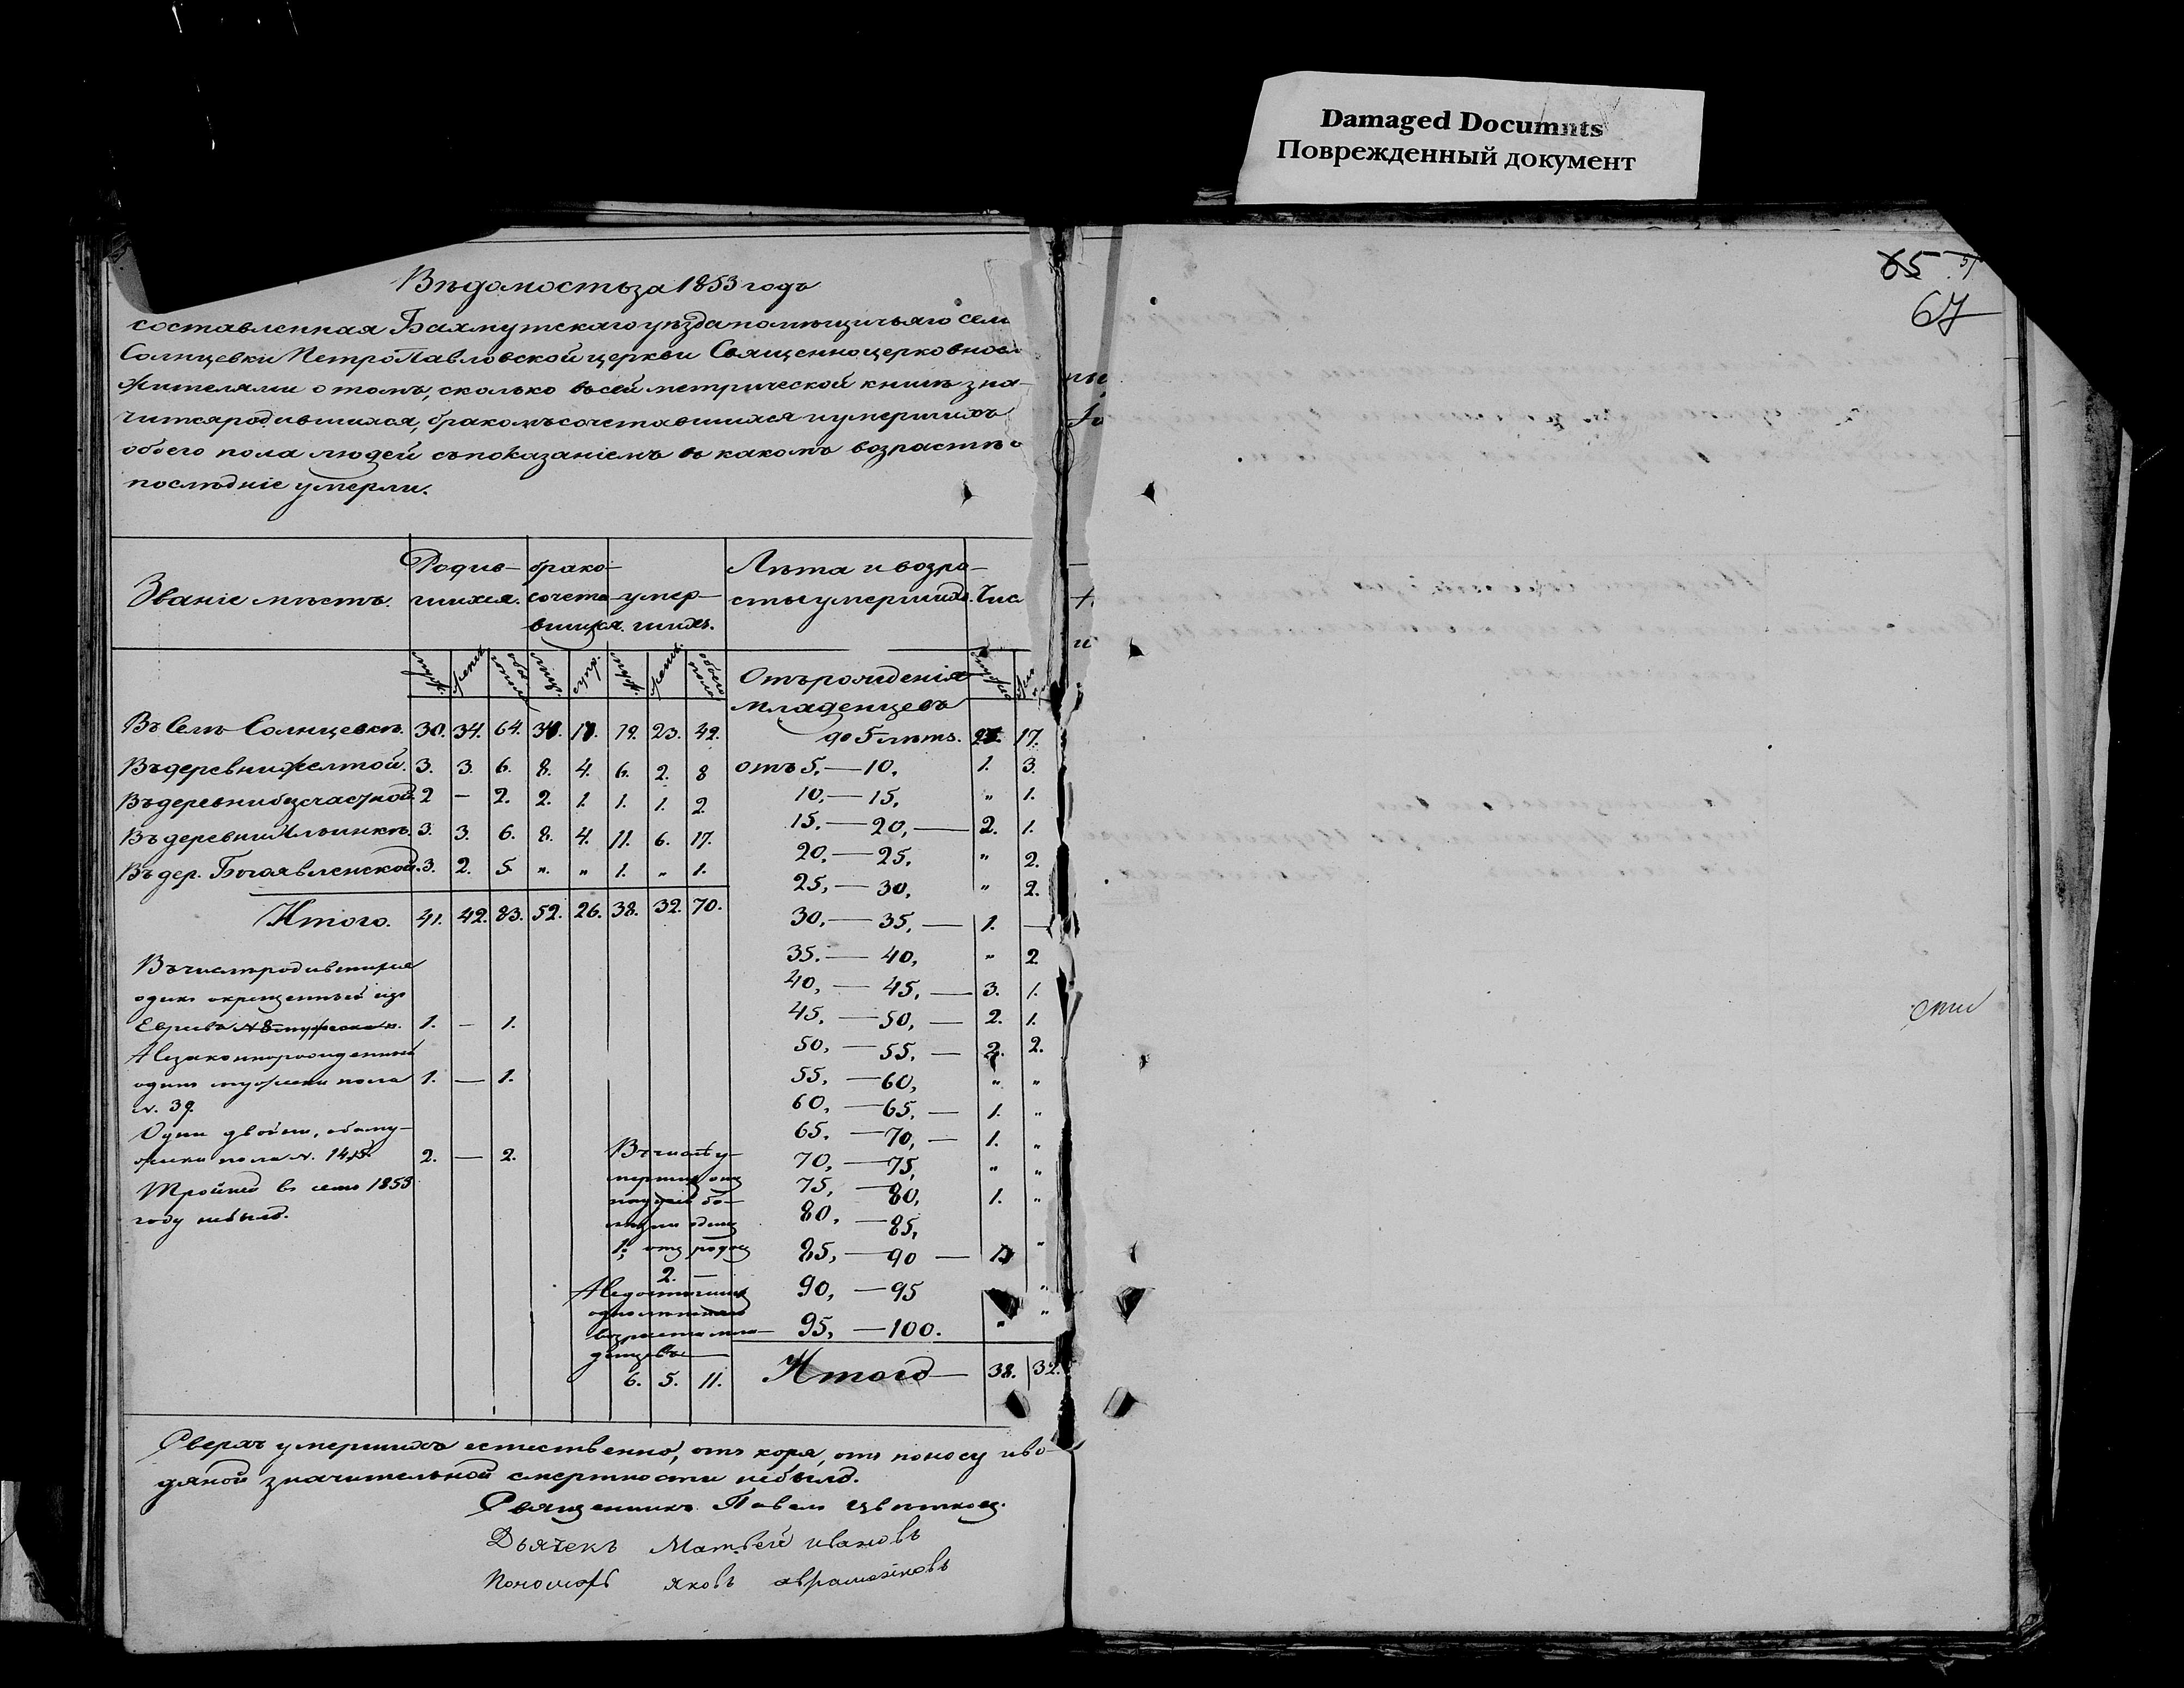 Damaged Documnts
Поврежденный документ
65
67
Вѣдомость за 1853 годъ
составленная Бахмутскаго уѣзда помѣщичьяго села
Солнцевки Петропавловской церкви Священноцерковно
жителями о томъ, сколько въ сей метрической книгѣ зна-
чится родившихся, бракомъ сочетавшихся и умершихъ
обоего пола людей съ показаніемъ въ какомъ возрастѣ
послѣдніе умерли.
Званіе мѣстъ. Родив- брако- Лѣта и возра-
шихся. сочета- умер- сты умершихъ. Чис
вшихся. шихъ.
муж. женс. обоего пола лицъ. супр. муж. женс. обоего пола Отъ рожденія
младенцевъ
Въ Селѣ Солнцевкѣ. 30. 34. 64. 34. 17. 19. 23. 42. до 5 лѣтъ. 17.
Въ деревни Желтой. 3. 3. 6. 8. 4. 6. 2. 8 отъ 5. — 10. 1. 3.
Въ деревни безсчастной. 2 — 2. 2. 1. 1. 1. 2. 10. — 15. „ 1.
Въ деревни Ильинкѣ. 3. 3. 6. 8. 4. 11. 6. 17. 15. — 20, — 2. 1.
Въ дер. Богоявленской. 3. 2. 5. „ „ 1. „ 1. 20. — 25. „ 2.
25, — 30, „ 2.
Итого. 41. 42. 83. 52. 26. 38. 32. 70. 30. — 35, — 1. —
35. — 40, „ 2
40, — 45, — 3. 1.
45. — 50, — 2. 1.
50, — 55. — 2. 2.
55, — 60, „ „
60, — 65, — 1. „
65. — 70, — 1. „
70, — 75, „ „
75, — 80, 1. „
80. — 85,
85, — 90 — „
90, — 95 „
95, — 100. „ „
Итого — 38. 32.
Въ числѣ родившихся
одинъ окрещенный изъ
Евреевъ 1. — 1.
А незаконнорожденный
одинъ мужеска пола 1. — 1.
N. 39.
Одни двойни, оба му-
жеска пола N. 14, 15. 2. — 2.
Тройней въ семъ 1853
году небыло.
Въ числѣ у-
мершихъ отъ
1. отъ родовъ
2. —
А недостигшихъ
однолѣтняго
возраста мла-
денцевъ
6. 5. 11.
Сверхъ умершихъ естественно, отъ коря, отъ поносу и во-
дяной значительной смертности небыло.
Священникъ Павелъ Цвѣтковъ.
Дьячекъ Матвей Ивановъ
Пономарь Яковъ
сти